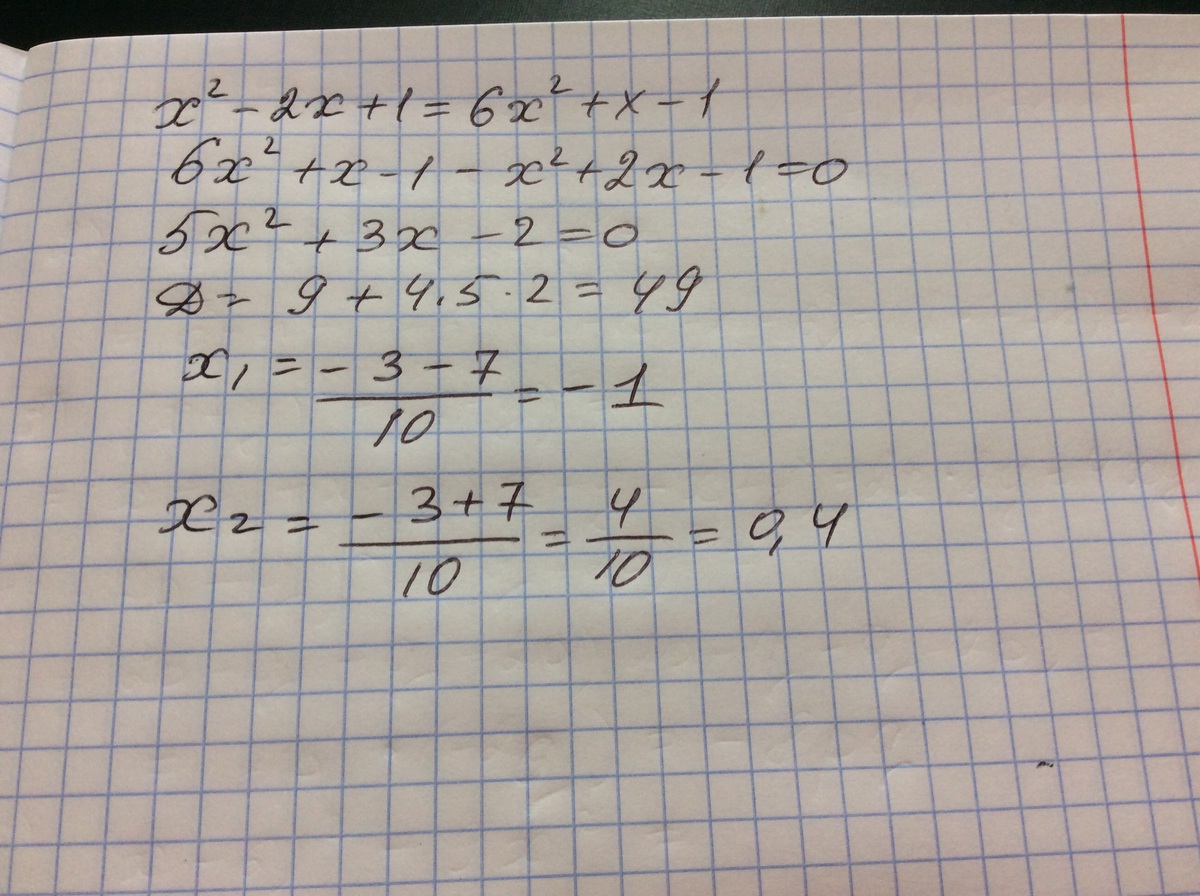 x² - 2x + 1 = 6x² + x - 1
6x² + x - 1 - x² + 2x - 1 = 0
5x² + 3x - 2 = 0
D = 9 + 4 · 5 · 2 = 49
x₁ = (-3 - 7)/10 = -1
x₂ = (-3 + 7)/10 = 4/10 = 0,4